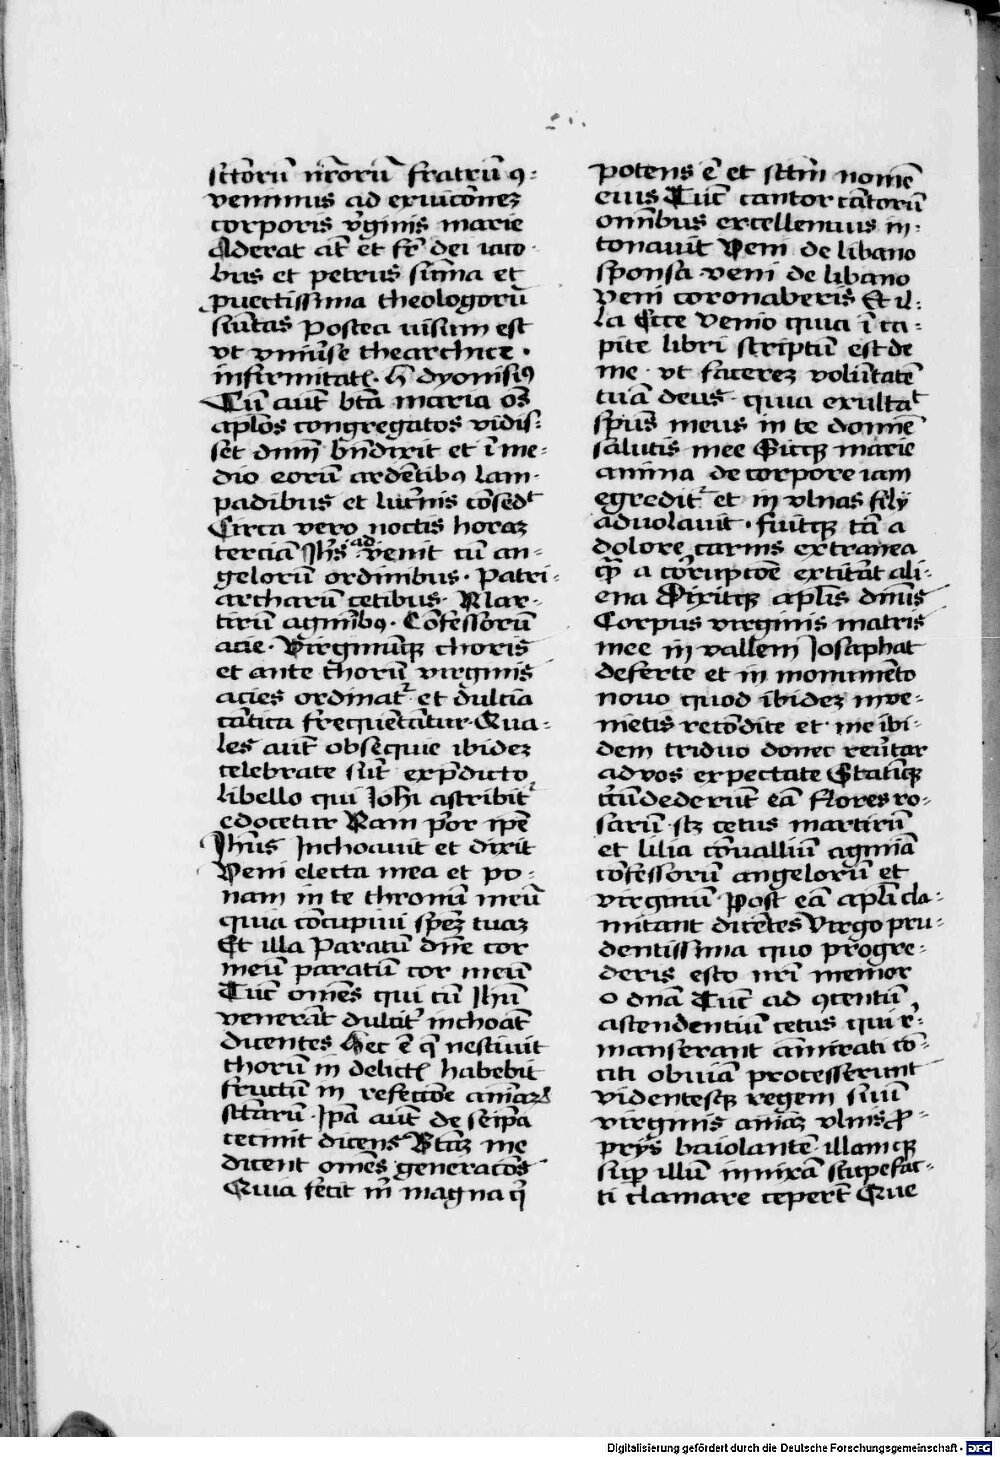 sctōrū nr̄orū fratrū ꝯ-
venimus ad exuicōnez
corporis v̄ginis marie
Aderat at̄ et fr̄ dei iaco-
bus et petrus sūma et
ꝓuectissima theologorū
sūitas postea uisum est
vt vniūse thearchice.
infirmitatꝭ. h̄ dyonisiꝰ
Cū aut̄ bt̄a maria oēs
aplōs congregatos vidis-
set dn̄m bn̄dixit et ī me-
dio eorū ardētibꝰ lam-
padibus et lucn̄is cōsedt
Circa vero noctis horaz
terciā Jhs̄ advenit cū an-
gelorū ordinibus. Patri-
archarū cetibus. Mar-
tirū agmībꝰ. Cōfessorū
acie. Virginūqꝫ choris
et ante thorū virginis
acies ordinat᷑ et dulcia
cātica freqūetātur. Qua-
les aut̄ obsequie ibidez
celebrate sūt ex p̄dicto
libello qui Johi̅ ascribit᷑
edocetur Nam pōr ip̄e
Jhūs Inchoauit et dixit
Veni electa mea et po-
nam in te thronū meū
quia cōcupiui spēz tuaz
Et illa Paratū dn̄e cor
meū paratū cor meū
Tūc om̄es qui cū Jhū
venerāt dulcit᷑ inchoāt
dicentes Hec ē q̄ nesciuit
thorū in delictꝭ habebit
fructū in refectiōe aīmaꝝ
sctārū. Ip̄a aut̄ de seip̄a
cecinit dicens Btāz me
dicent om̄es generacōs
Quia fecit m̄ magna qī
potens ē et sctm̄ nomē
eius Tūc cantor cātorū
omībus excellencius in-
tonauit Veni de libano
sponsa veni de libano
veni coronaberis Et il-
la Ecce Venio quia ī ca-
pite libri scriptū est de
me. vt facerez volūtatē
tuā deus. quia exultat
sp̄us meus in te domīe
salutis mee Sicqꝫ marie
anima de corpore iam
egredit᷑ et in vlnas filÿ
aduolauit. fuitqꝫ tā a
dolore carnis extranea
qm̄ a cōrupcōe extitāt ali-
ena Dixitqꝫ aplīs dm̄s
Corpus virginis matris
mee in vallem Josaphat
deferte et in monumēto
nouo quod ibidez inve-
nietis recōdite et me ibi-
dem triduo donec reūtar
ad vos expectate Statīqꝫ
cīcūdederūt eā flores ro-
sarū. sꝫ cetus martirū
et lilia cōuallium agmīa
cōfessorū angelorū et
virginū. Post eā aplī cla-
mitant dicētes Virgo pru-
dentissima quo progre-
deris esto nrī memor
o dnā Tūc ad ꝯcentū
ascendentiū cetus qui r̄-
manserant āmirati cō-
citi obuiā processerunt
videntesqꝫ regem suū
virginis aīmaz vlnis ꝓ-
prÿs baiolantē. illamqꝫ
suꝑ illū innixā stupefac-
ti clamare ceper̄t Que
Digitalisierung gefördert durch die Deutsche Forschungsgemeinschaft - DFG